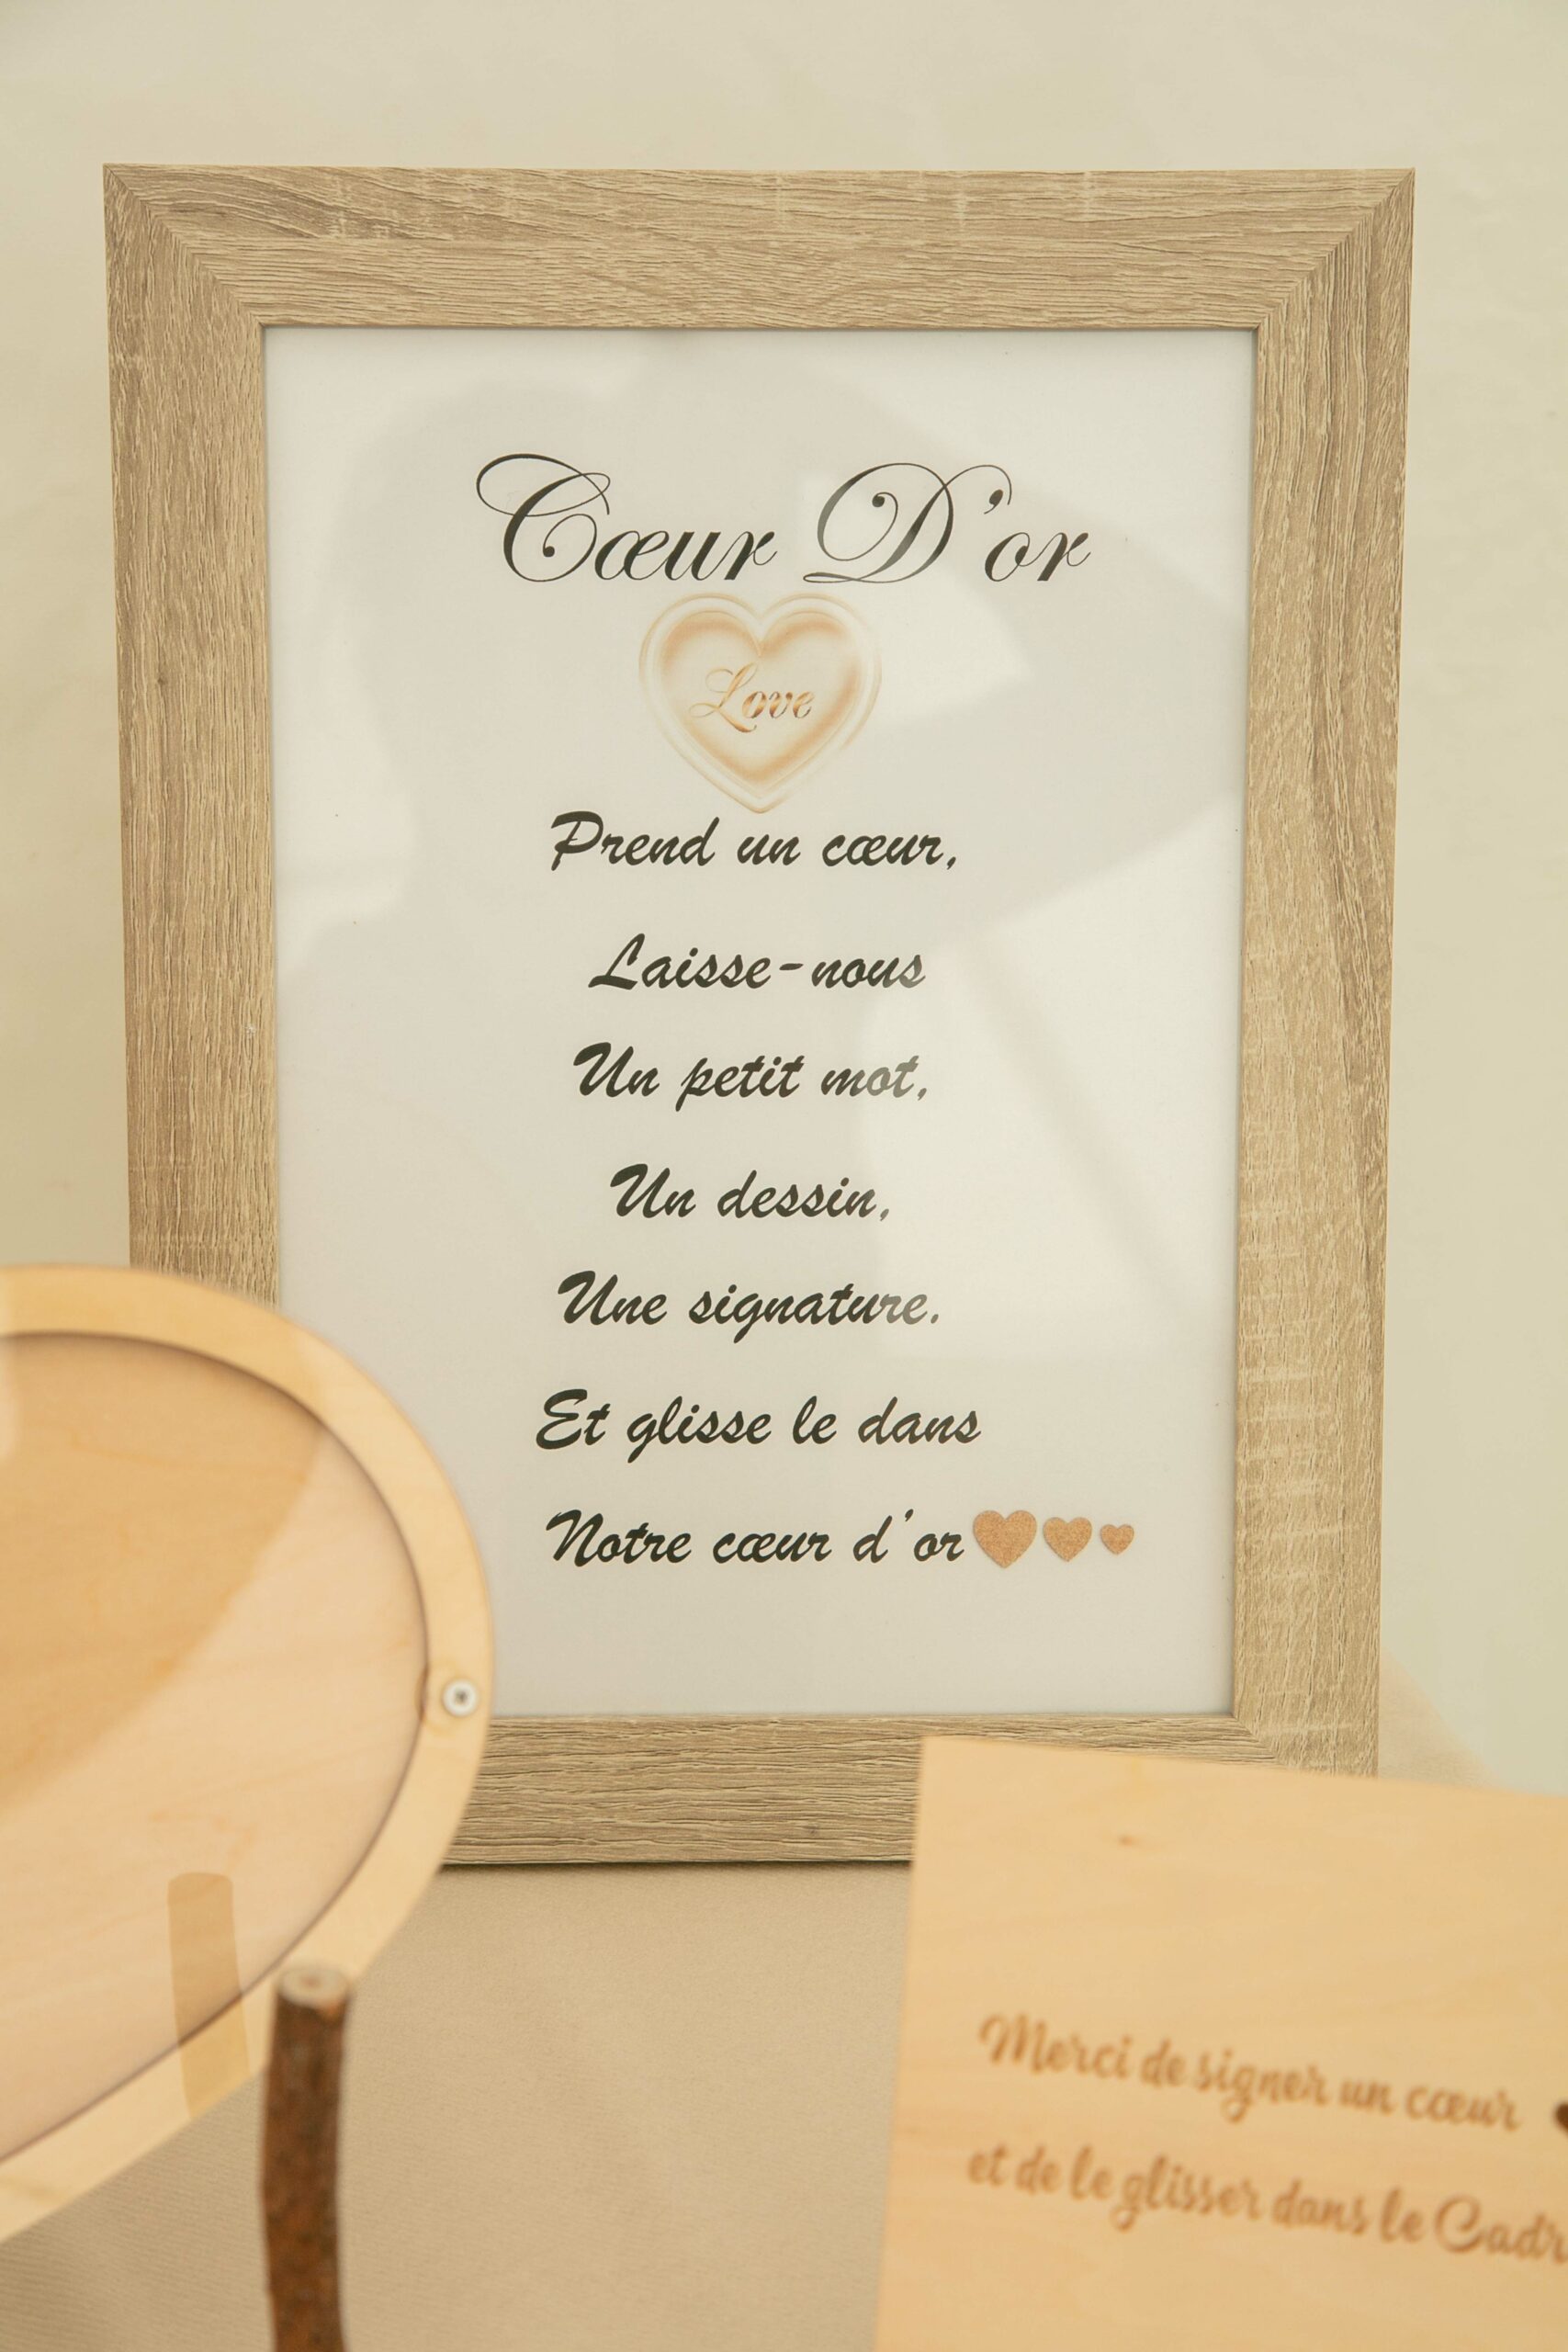 Cœur D'or
Love
Prend un cœur,
Laisse-nous
Un petit mot,
Un dessin,
Une signature.
Et glisse le dans
Notre cœur d'or
Merci de signer un cœur
et de le glisser dans le